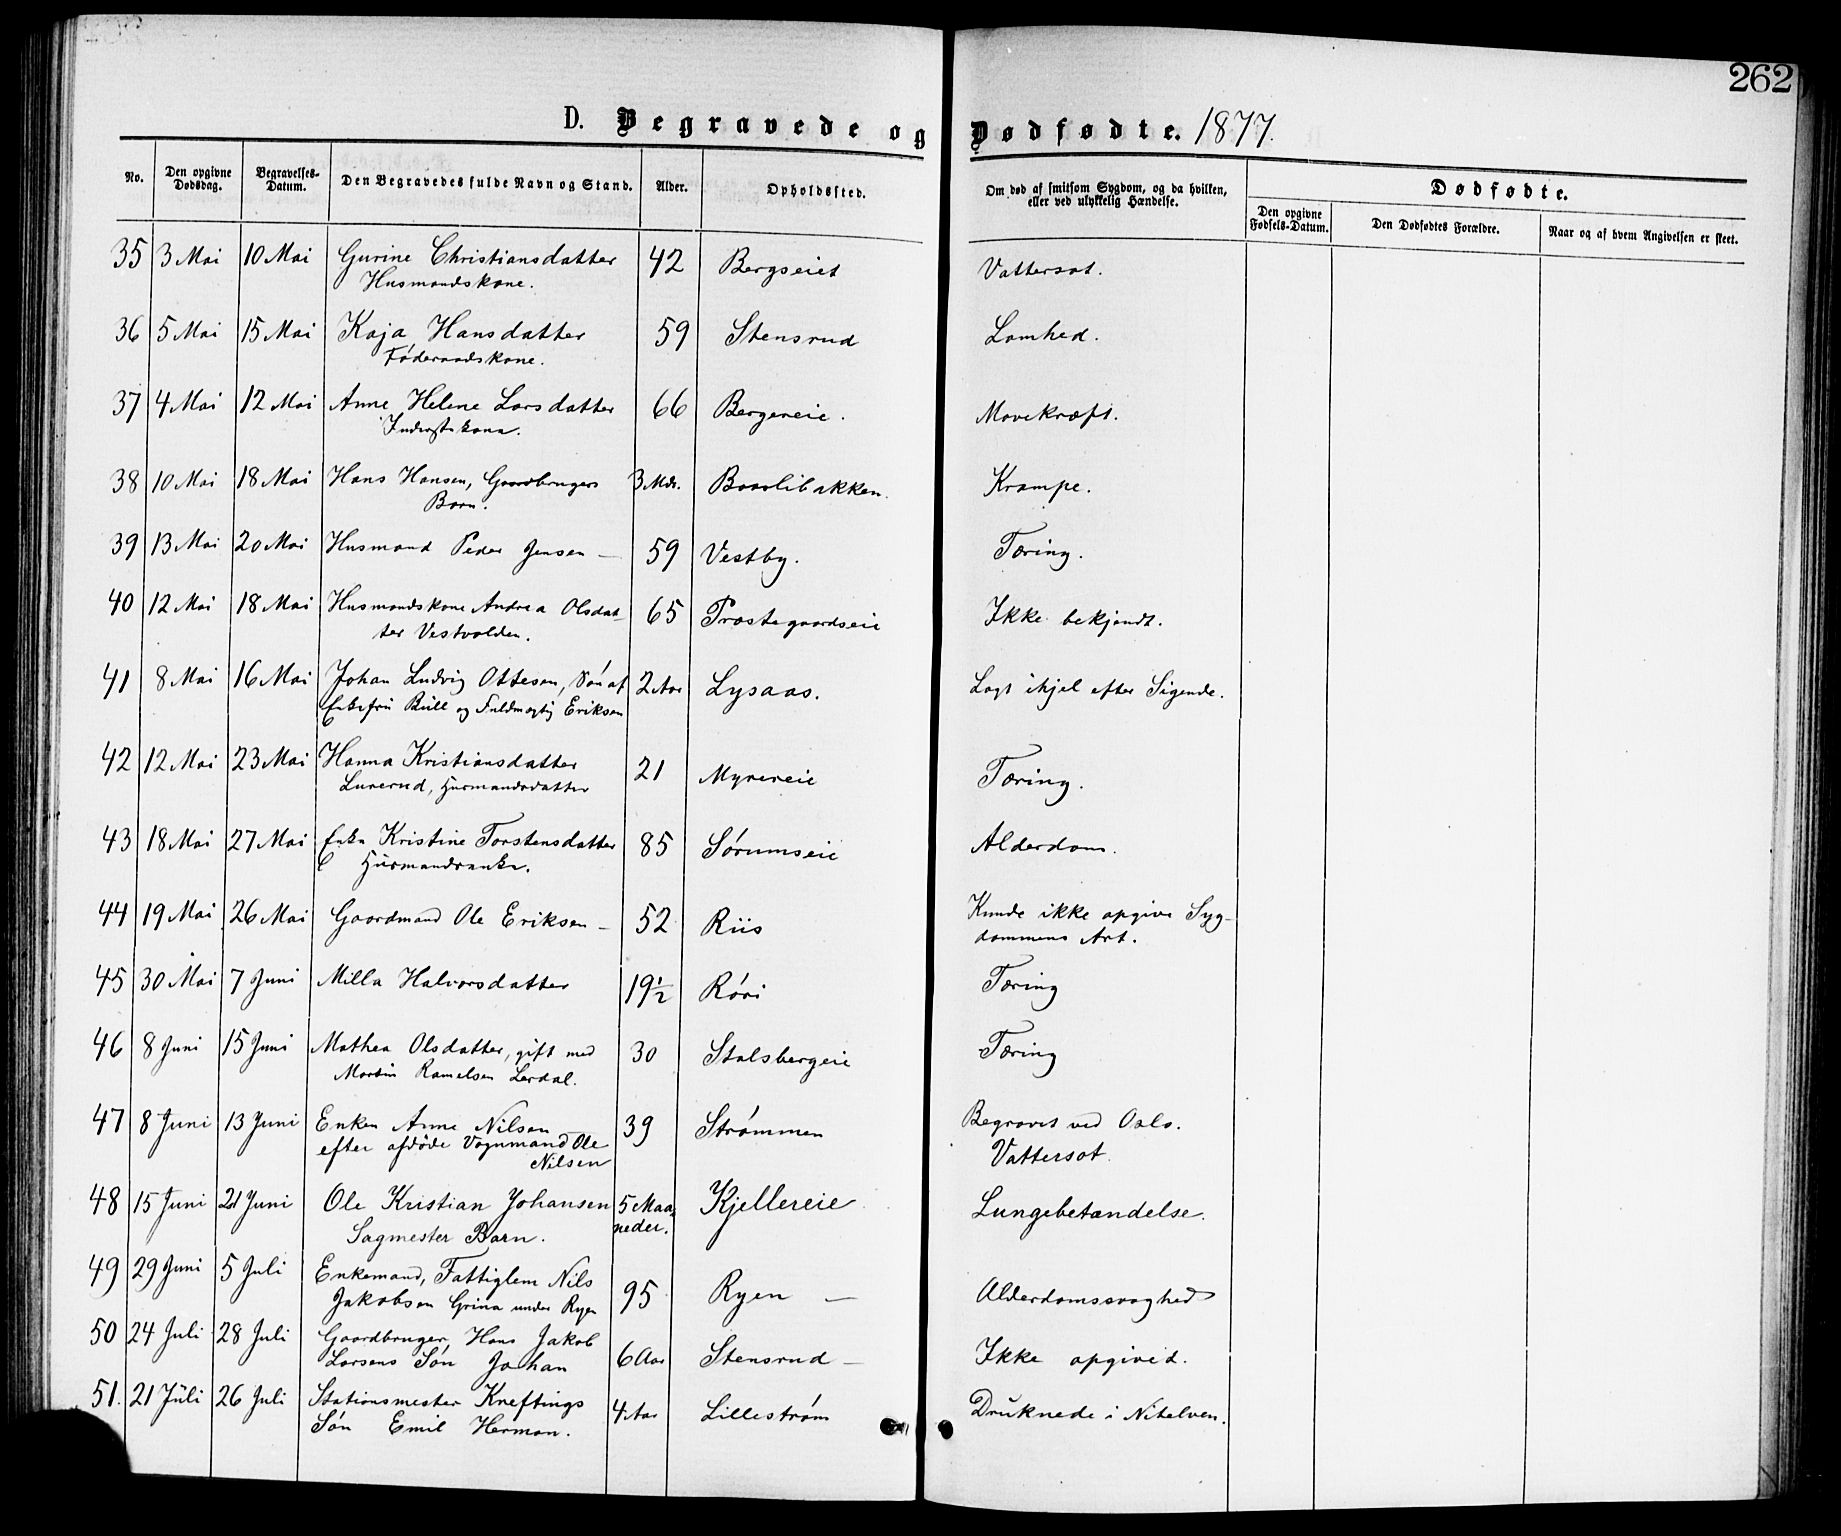 262
D. Begravede og Dødfødte. 1877.
No.
Den opgivne Dødsdag.
Begravelses-Datum.
Den Begravedes fulde Navn og Stand.
Alder.
Opholdssted.
Om død af smitsom Sygdom, og da hvilken,
eller ved ulykkelig Hændelse.
Dødfødte.
Den opgivne Fødsels-Datum.
Den Dødfødtes Forældre.
Naar og af hvem Angivelsen er skeet.
35 3 Mai 10 Mai Gurine Christiansdatter 42 Bergseiet Vattersot.
Husmandskone.
36 5 Mai 15 Mai Kaja Hansdatter 59 Stensrud Lamhed.
Føderaadskone.
37 4 Mai 12 Mai Anne Helene Larsdatter 66 Bergereie. Mavekræft.
Inderstekone.
38 10 Mai 18 Mai Hans Hansen, Gaardbrugers 3 Mdr. Braatibakken. Krampe.
Barn.
39 13 Mai 20 Mai Husmand Peder Jensen — 59 Vestby. Tæring.
40 12 Mai 18 Mai Husmandskone Andrea Olsdat- 65 Præstegaardseie Ikke bekjendt.
ter Vestvolden.
41 8 Mai 16 Mai Johan Ludvig Ottesen, Søn af 2 Aar Lysaas. Lagt ihjel efter Sigende.
Enkefru Büll og Fuldmægtig Eriksen
42 12 Mai 23 Mai Hanna Kristiansdatter 21 Myrereie Tæring.
Lurerud, Husmandsdatter
43 18 Mai 27 Mai Enke Kristine Torstensdatter 85 Sørumseie Alderdom.
Husmandsenke.
44 19 Mai 26 Mai Gaardmand Ole Eriksen — 52 Riis Kunde ikke opgive Syg-
dommens Art.
45 30 Mai 7 Juni Milla Halvorsdatter 19½ Røri Tæring
46 8 Juni 15 Juni Mathea Olsdatter, gift med 30 Stalsbergeie Tæring
Martin Ramelsen Lerdal.
47 8 Juni 13 Juni Enken Anne Nilsen 39 Strømmen Begravet ved Oslo.
efter afdøde Vognmand Ole Vattersot.
Nilsen
48 15 Juni 21 Juni Ole Kristian Johansen 5 Maa- Kjellereie Lungebetændelse.
Sagmester Barn. neder.
49 29 Juni 5 Juli Enkemand, Fattiglem Nils
Jakobsen Grina under Ryen 95 Ryen — Alderdomssvaghed
50 24 Juli 28 Juli Gaardbruger, Hans Jakob
Larsens Søn Johan 6 Aar Stensrud — Ikke opgived.
51. 21 Juli 26 Juli Stationsmester Kreftings 4 Aar Lillestrøm Druknede i Nitelven.
Søn Emil Herman.